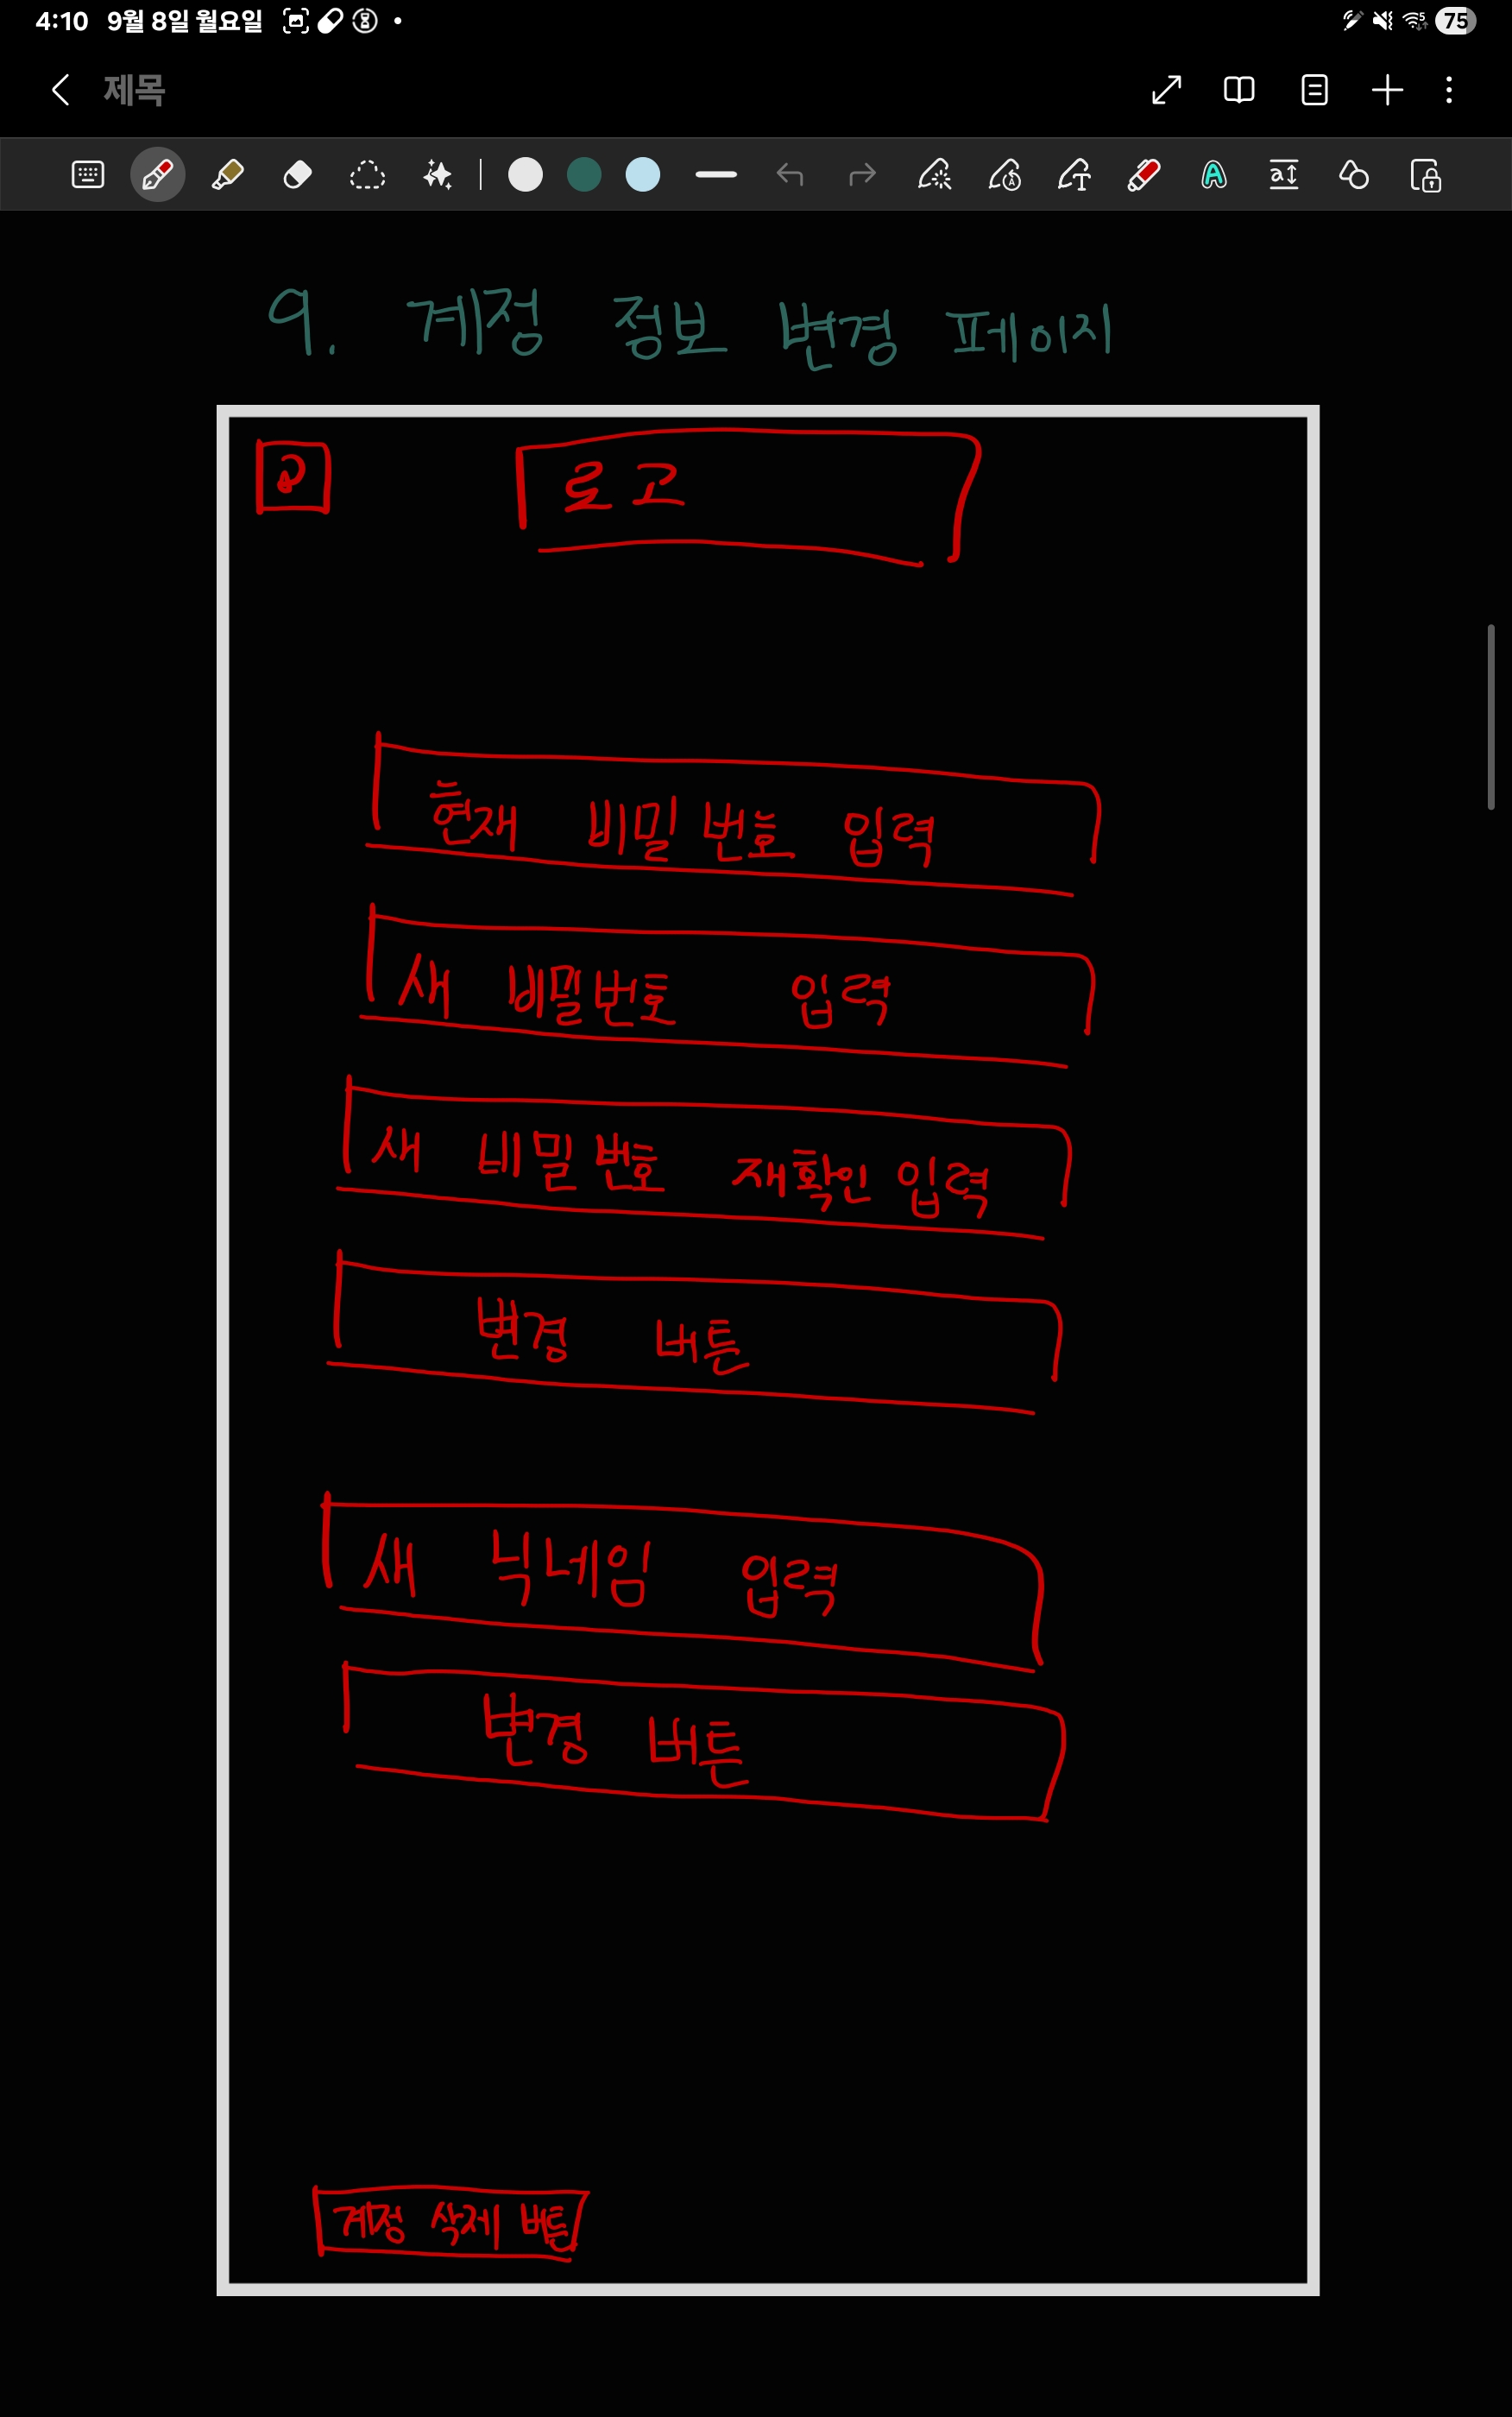 4:10 9월 8일 월요일 75
제목
9. 계정 정보 변경 페이지
로고
현재 비밀번호 입력
새 비밀번호 입력
새 비밀번호 재확인 입력
변경 버튼
새 닉네임 입력
변경 버튼
계정 삭제 버튼